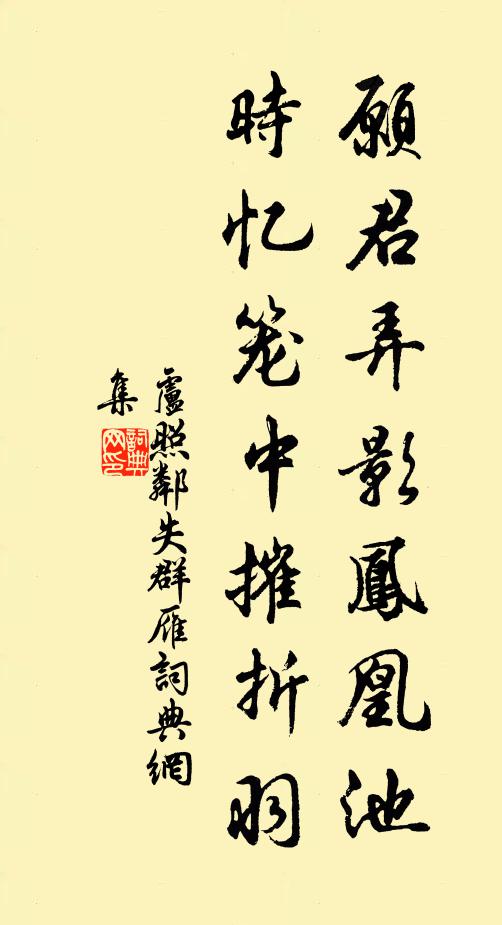 願君弄影鳳凰池
時忆笼中摧折羽
盧照鄰失群雁詞典網
集
詞典
网印